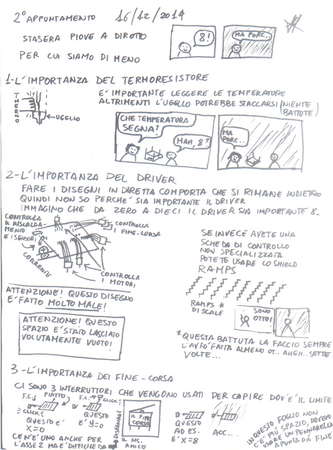 2° APPUNTAMENTO 16/12/2014
STASERA PIOVE A DIROTTO
PER CUI SIAMO DI MENO
8!
MA PORC..
1-L'IMPORTANZA DEL TERMORESISTORE
E' IMPORTANTE LEGGERE LE TEMPERATURE
ALTRIMENTI L'UGELLO POTREBBE STACCARSI (NIENTE BATTUTE)
UGELLO
CHE TEMPERATURA
SEGNA?
MAH, 8?
MA
PORC..
2-L'IMPORTANZA DEL DRIVER
FARE I DISEGNI IN DIRETTA COMPORTA CHE SI RIMANE INDIETRO
QUINDI NON SO PERCHE' SIA IMPORTANTE IL DRIVER
IMMAGINO CHE DA ZERO A DIECI IL DRIVER SIA IMPORTANTE 8.
CONTROLLA
IL RISCALDA-
MENTO
E I SENSORI
CONTROLLA
I FINE-CORSA
CORRENTE
CONTROLLA
I MOTORI
SE INVECE AVETE UNA
SCHEDA DI CONTROLLO
NON SPECIALIZZATA
POTETE USARE LO SHIELD
RAMPS
ATTENZIONE! QUESTO DISEGNO
E' FATTO MOLTO MALE!
RAMPS *
DI SCALE
SONO
OTTO!
ATTENZIONE! QUESTO
SPAZIO E' STATO LASCIATO
VOLUTAMENTE VUOTO!
* QUESTA BATTUTA LA FACCIO SEMPRE
L'AVRO' FATTA ALMENO OT... AHGH.. SETTE
VOLTE...
3-L'IMPORTANZA DEI FINE-CORSA
CI SONO 3 INTERRUTTORI CHE VENGONO USATI PER CAPIRE DOV'E' IL LIMITE
PIATTO
QUESTO E'
X=0
QUESTO
E' Y=0
IL FINE
CORSA
IL NS.
AMICO
QUESTO
AD ES.
E' X=8
ACC...
CE N'E' UNO ANCHE PER
L'ASSE Z MA E' DIFFICILE DA
DISEGNARE
IN QUESTO FOGLIO NON
C'E' PIU' SPAZIO, DOVREI
USARE UN PENNARELLO
A PUNTA PIU' FINE